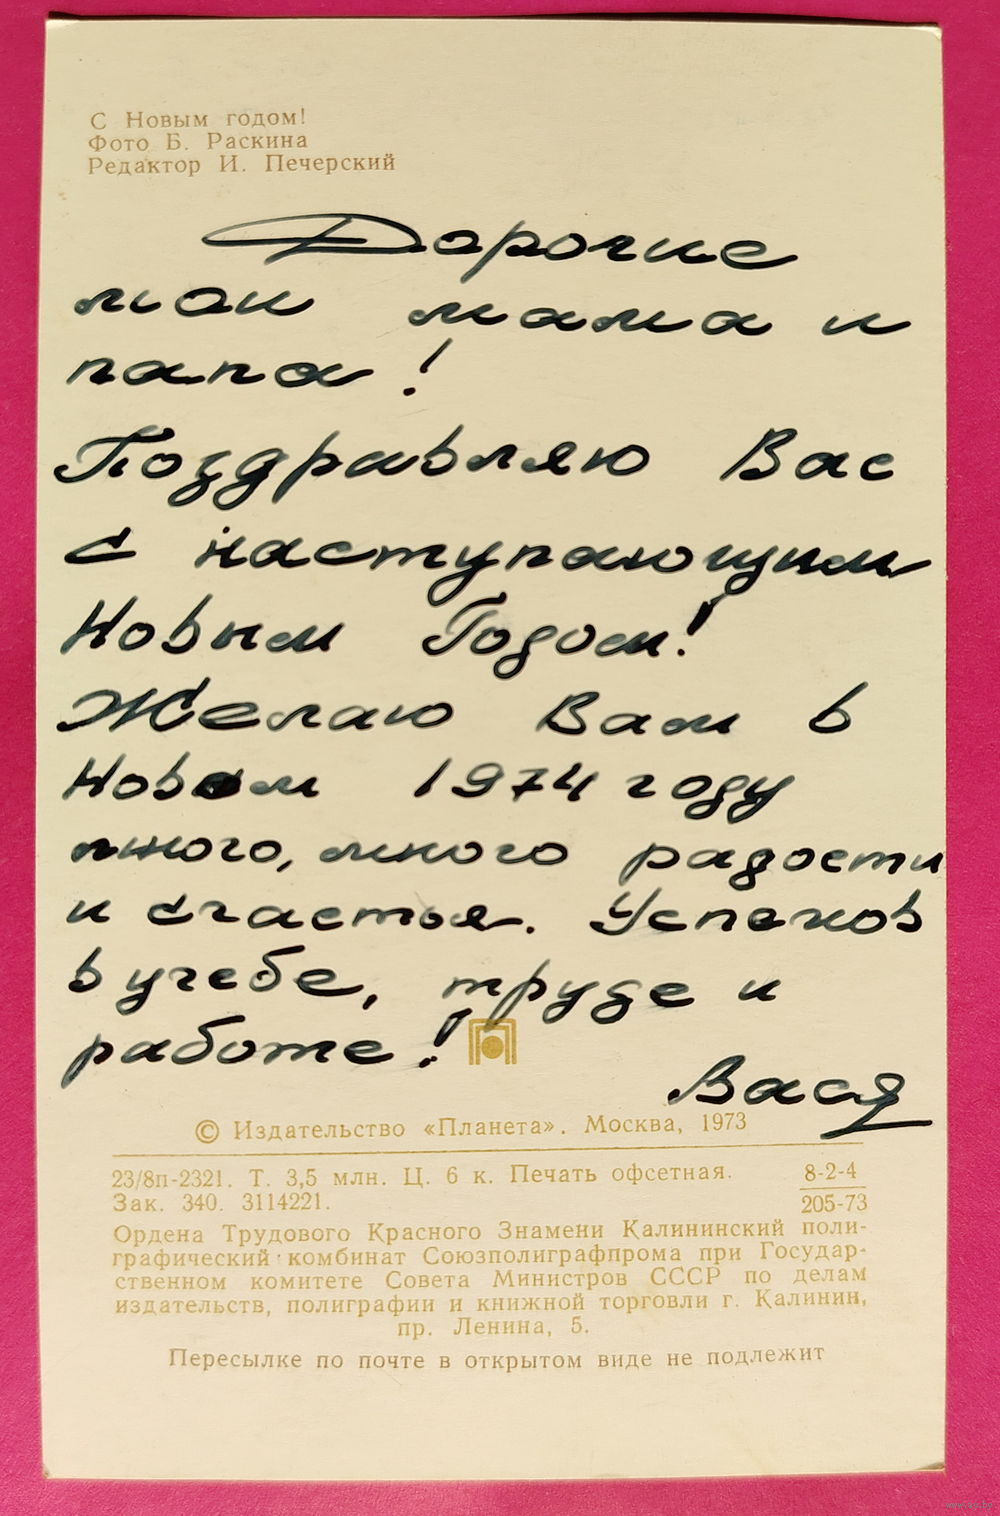 С Новым годом!
Фото Б. Раскина
Редактор И. Печерский
Дорогие
мои мама и
папа!
Поздравляю Вас
с наступающим
Новым Годом!
Желаю Вам в
Новом 1974 году
много, много радости
и счастья. Успехов
в учебе, труде и
работе!
Вася
© Издательство «Планета». Москва, 1973
23/8п-2321. Т. 3,5 млн. Ц. 6 к. Печать офсетная. 8-2-4
Зак. 340. 3114221. 205-73
Ордена Трудового Красного Знамени Калининский поли-
графический комбинат Союзполиграфпрома при Государ-
ственном комитете Совета Министров СССР по делам
издательств, полиграфии и книжной торговли г. Калинин,
пр. Ленина, 5.
Пересылке по почте в открытом виде не подлежит